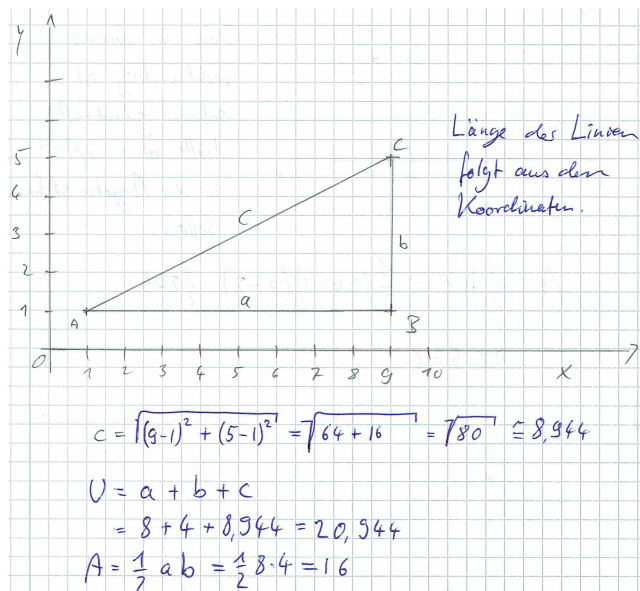 y
5
4
3
2
1
0
1 2 3 4 5 6 7 8 9 10 x
A
B
C
c
a
b
Länge der Linien
folgt aus den
Koordinaten.
c = √((9-1)² + (5-1)²) = √(64 + 16) = √80 ≅ 8,944
U = a + b + c
= 8 + 4 + 8,944 = 20,944
A = 1/2 a b = 1/2 8·4 = 16